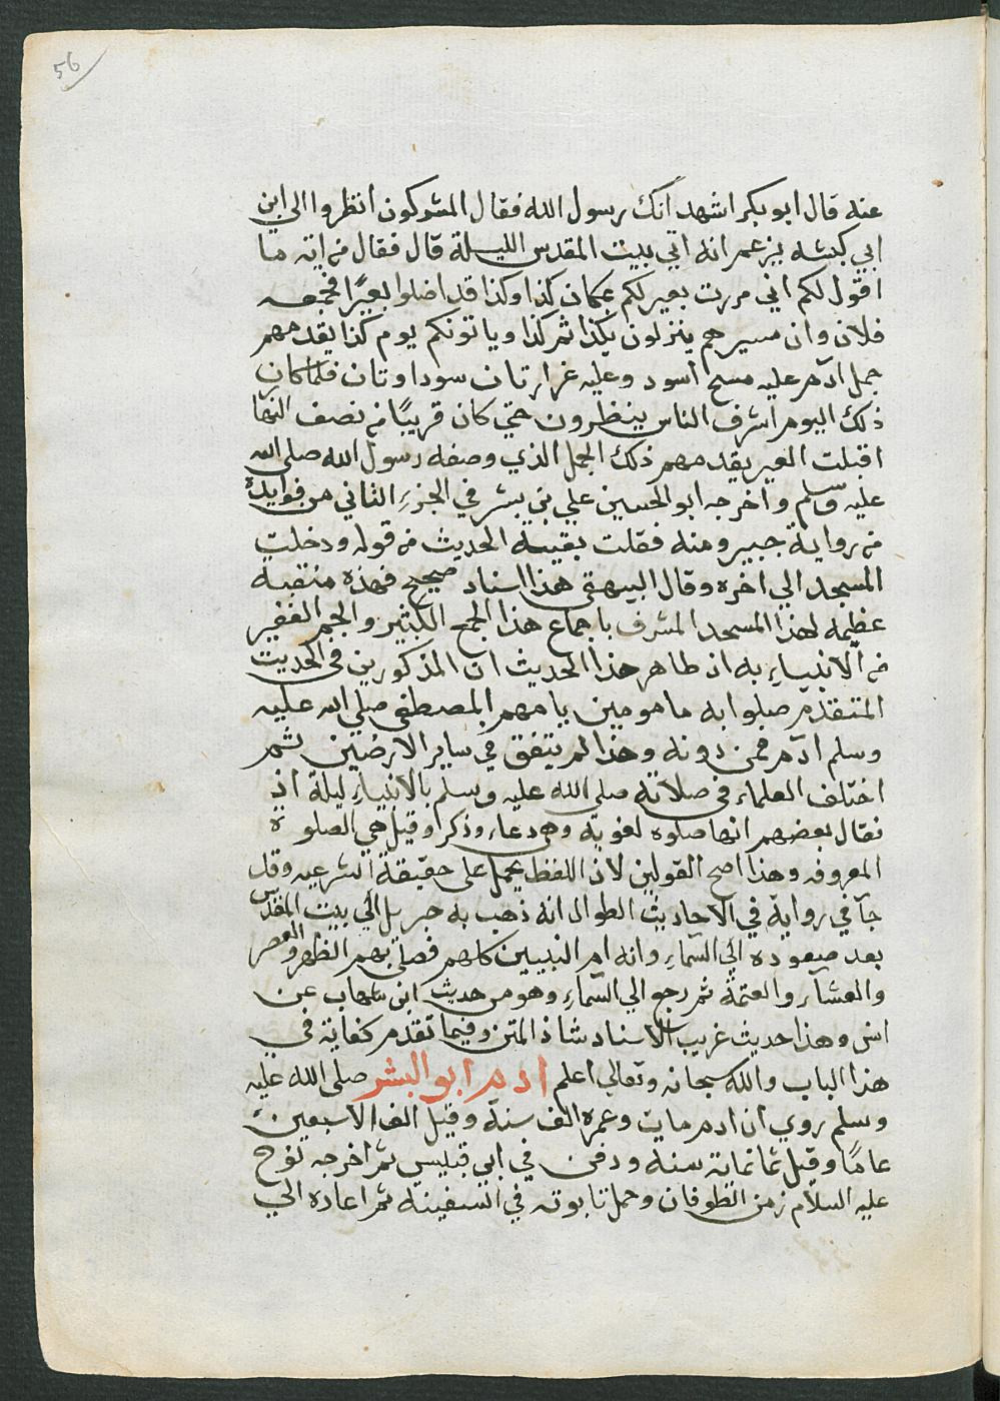 56
عنه قال ابو بكر اشهد انك رسول الله فقال المشركون انظروا الى ابن
ابي كبشه يزعم انه اتي بيت المقدس الليلة قال فقال من ايته ما
اقول لكم اني مررت بعير لكم بمكان كذا وكذا قد اضلوا بعيرًا فجمعه
فلان وان مسيرهم ينزلون بكذا ثم كذا وياتونكم يوم كذا يقدمهم
جمل ادم عليه مسح اسود وعليه غرارتان سوداوتان فلما كان
ذلك اليوم اشرف الناس ينظرون حتي كان قريبًا من نصف النها
اقبلت العير يقدمهم ذلك الجمل الذي وصفه رسول الله صلى الله
عليه وسلم واخرجه ابو الحسين علي بن بشر في الجزء الثاني من فوايده
من رواية جبير ومنه فقلت بقيسة الحديث من قوله ودخلت
المسجد الي اخره وقال البيهقي هذا اسناد صحيح فهذه منقبه
عظيمه لهذا المسجد المشرف باجماع هذا الجمع الكثير والجم الغفير
من الانبياء به اذ ظاهر هذا الحديث ان المذكورين في الحديث
المتقدم صلوا به ماموميين يامهم المصطفى صلى الله عليه
وسلم ادم فمن دونه وهذا لم يتفق في ساير الارضين ثم
اختلف العلماء في صلاته صلى الله عليه وسلم بالانبياء ليلة اذ
فقال بعضهم انها صلوه لغويه وهي دعاء وذكر وقيل هي الصلو ة
المعروفه وهذا اصح القولين لان اللفظ يحمل على حقيقة الشرعيه وقد
جآ في رواية في الاحاديث الطوال انه ذهب به جبريل الي بيت المقدس
بعد صعوده الي السماء وانه ام النبيين كلهم فصلى بهم الظهر والعصر
والعشآء والعتمة ثم رجع الي السمآء وهو من حديث ابن شهاب عن
انس وهذا حديث غريب الاسناد شاذ المتن وفيما تقدم كفاية في
هذا الباب والله سبحانه وتعالي اعلم ادم ابو البشر صلى الله عليه
وسلم روي ان ادم مات وعمره الف سنة وقيل الف الا سبعين
عامًا وقيل ثمانماية سنه ودفن في ابي قبيس ثم اخرجه نوح
عليه السلام زمن الطوفان وحمل تابوته في السفينة ثم اعاده الي